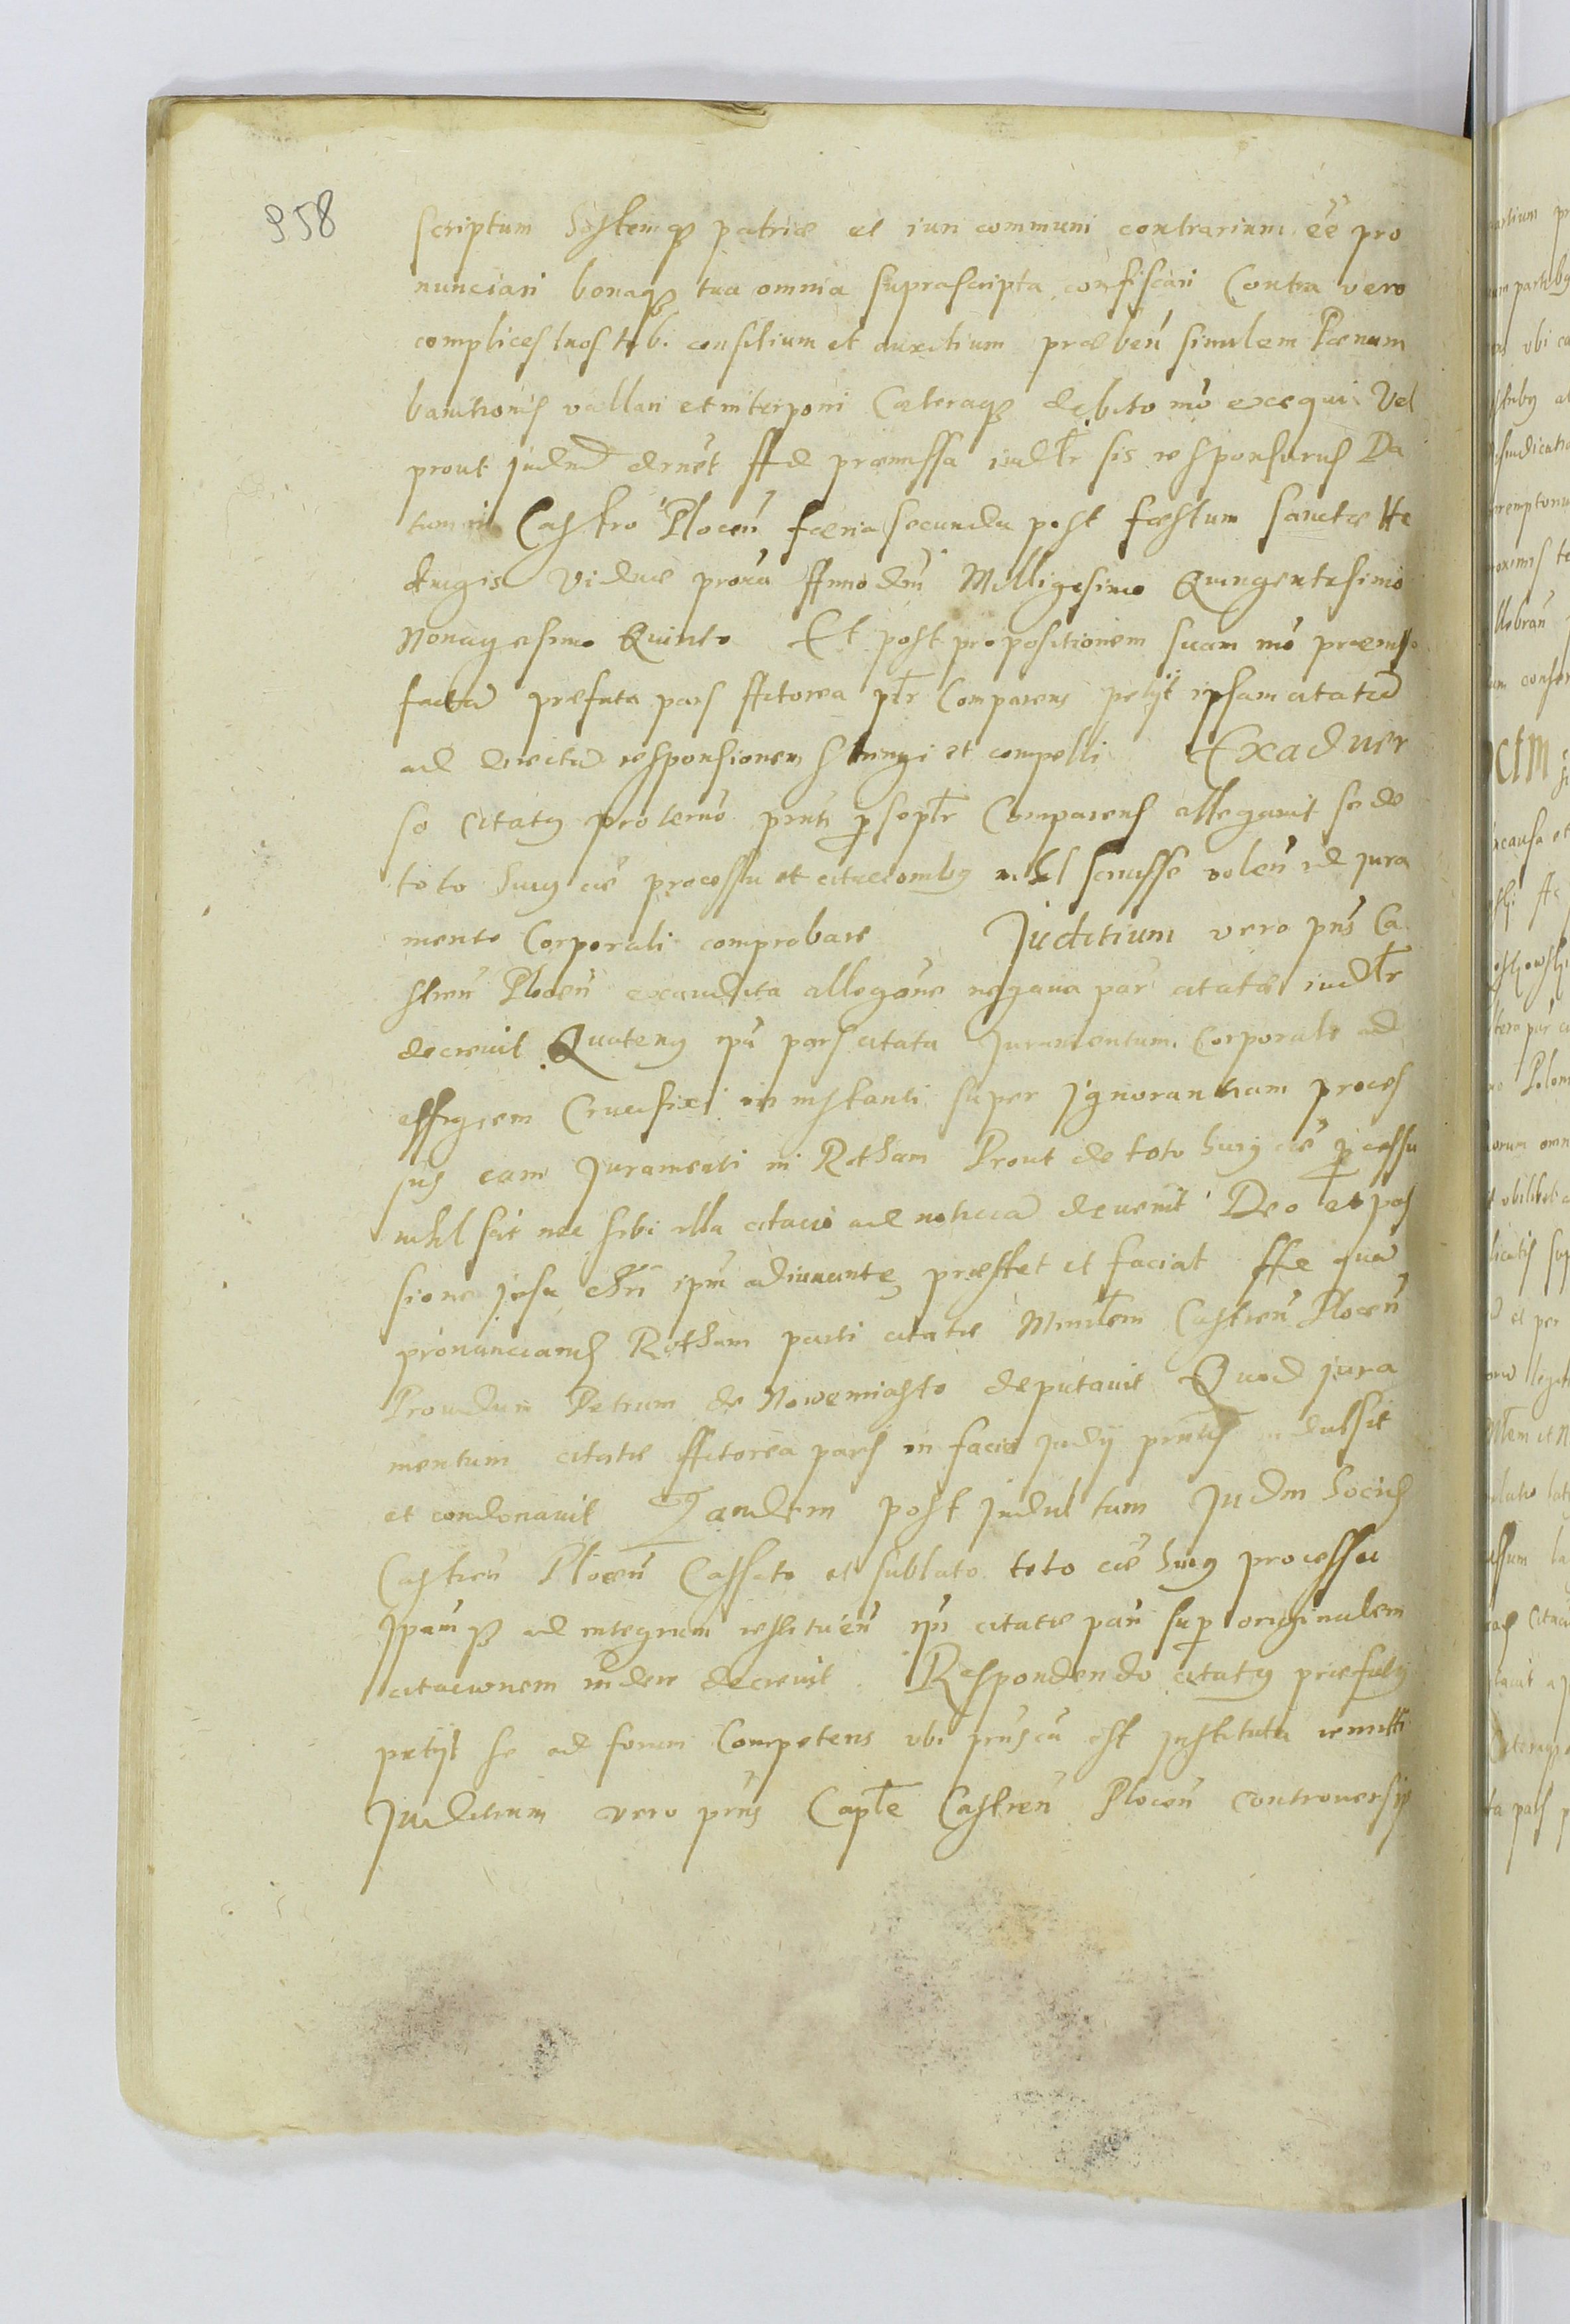 958
scriptum hostemq patriæ et iuri communi contrarium eē pro
nunciari bonaq tua omnia suprascripta confiscari Contra vero
complices tuos tibi consilium et auxilium præben similem Pænam
banitionis vallari et interponi Cæteraq debito mō exequi Vel
prout Judm decrnet Ad præmissa iudlr sis responsurus Da
tum in Castro Plocen færia secunda post fæstum Sanctæ He
duigis Viduæ proxa Anno dni Milligesimo Quingentesimo
Nonagesimo Quinto Et post propositionem suam mō præmisso
factā præfata pars Actorea plr Comparens petijt ipsam citatā
ad directā responsionem stringi et compelli Exaduer
so Citatus proterno pnti psoplr Comparens allegauit se de
toto huius cæ processu et citacionibus nihil sciuisse volen id jura
mento Corporali comprobare Juditium vero pns Ca
stren Plocen exaudita allegone negaua par citatæ iudlr
decreuit Quatenus ipa pars citata Juramentum Corporale ad
effigiem Crucifixi in instanti super Ignorantiam proces
sus eam Juramenti in Rotham Prout de toto huius cæ pcessu
nihil scit nec sibi illa citacio ad noticiā deuenit Deo et pas
sione Jesu Chri ipm adiuuante præstet et faciat Ad quā
pronunciand Rotham parti citatæ Minrlem Castren Plocen
Prouidum Petrum de Nowemiasto deputauit Quod jura
mentum citatæ Actorea pars in facie Judij pntis indulsit
et condonauit Tandem post Indultum Judm hocius
Castren Plocen Cassato et sublato toto cæ huius processu
Ipamq ad integrum restituen ipi citatæ parti sup originalem
citacionem rndere decreuit Respondendo citatus præfatus
petijt se ad forum Competens vbi pnus ca est Instituta remitti
Juditium vero pns Caplle Castren Plocen controuersijs